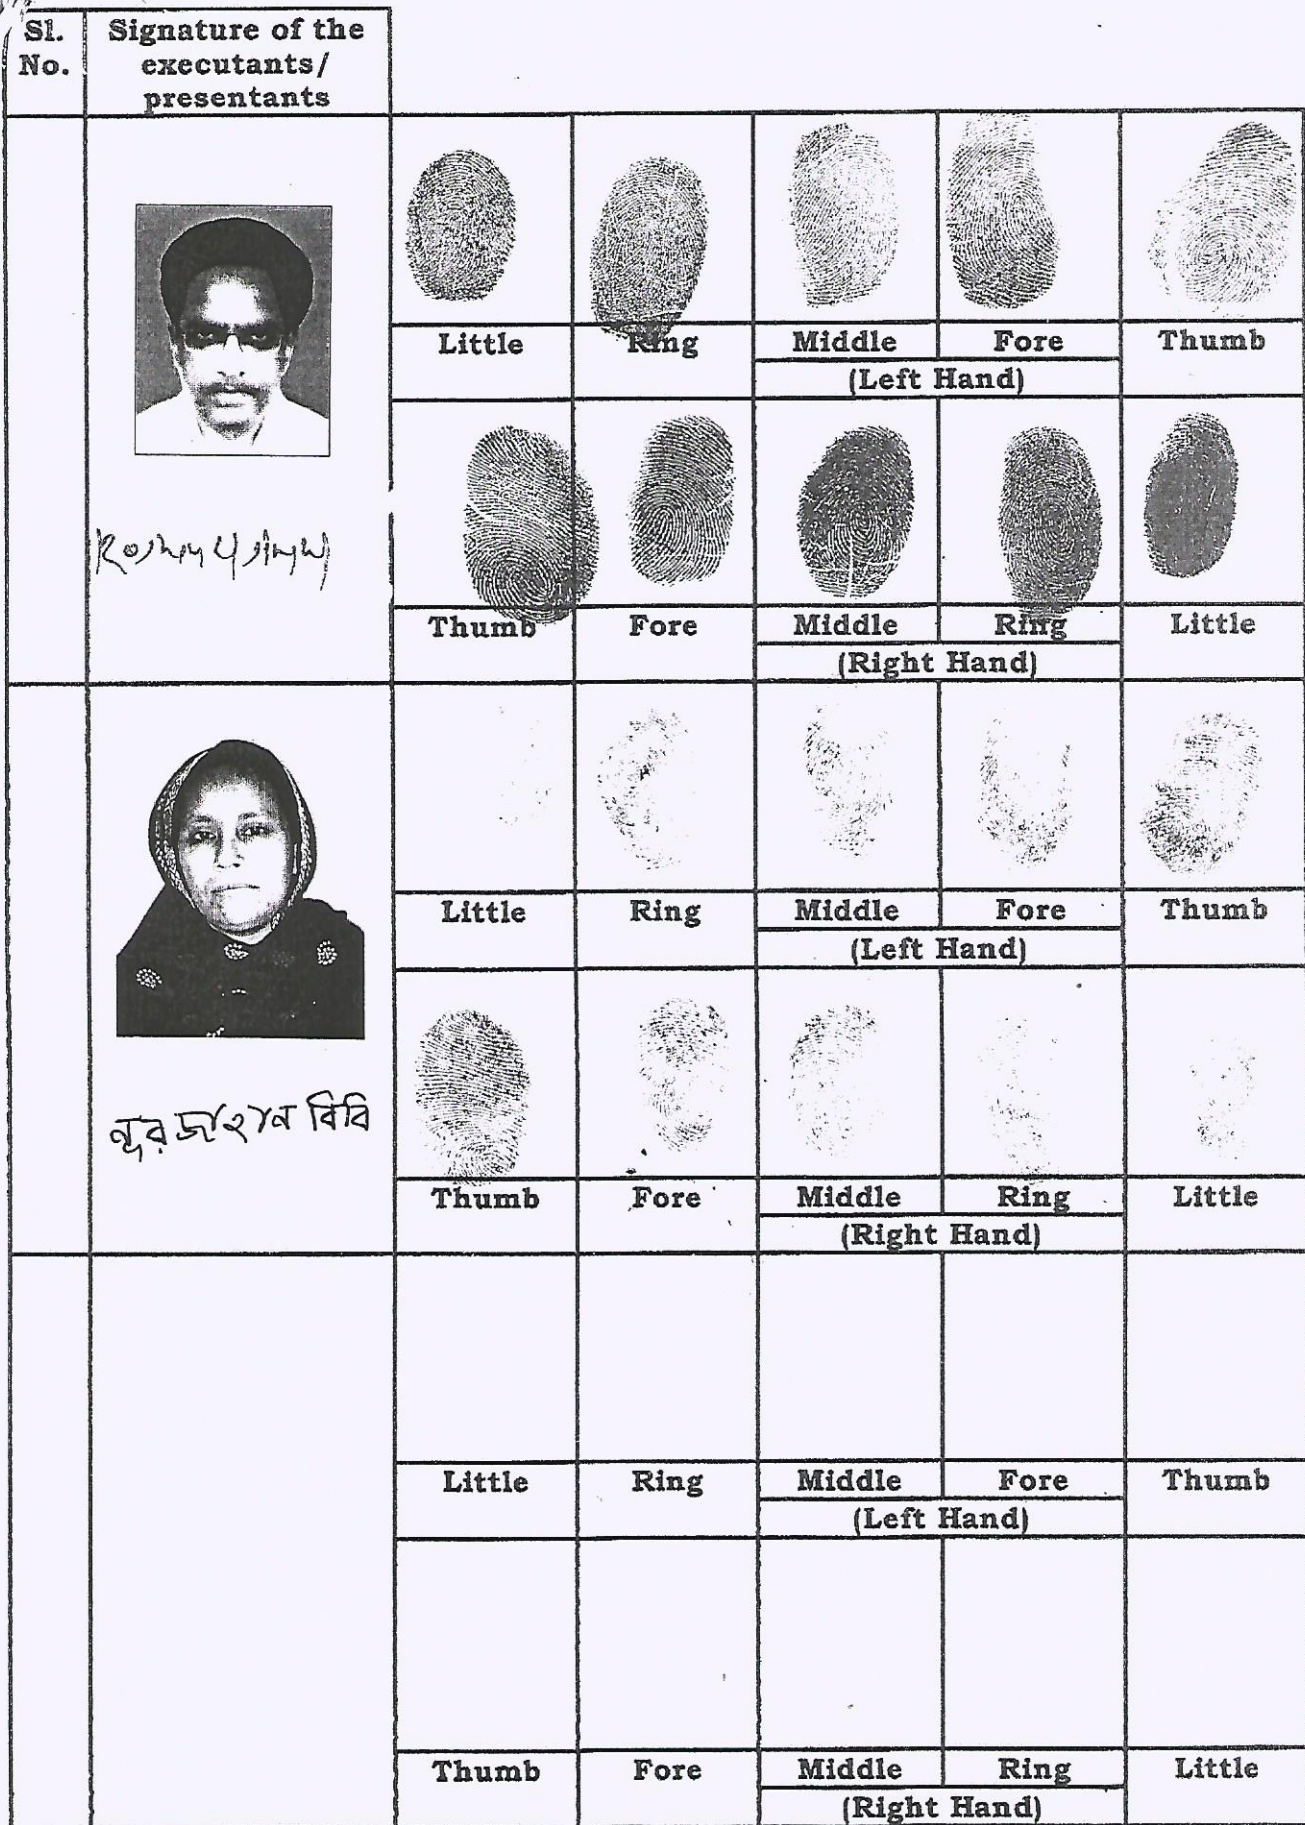 Sl.
No.
Signature of the
executants/
presentants
Little
Ring
Middle
Fore
Thumb
(Left Hand)
Thumb
Fore
Middle
Ring
Little
(Right Hand)
Little
Ring
Middle
Fore
Thumb
(Left Hand)
নুরজাহান বিবি
Thumb
Fore
Middle
Ring
Little
(Right Hand)
Little
Ring
Middle
Fore
Thumb
(Left Hand)
Thumb
Fore
Middle
Ring
Little
(Right Hand)